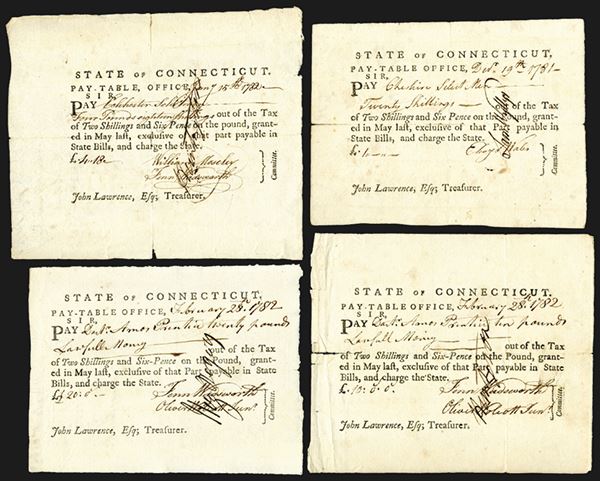 STATE OF CONNECTICUT.
PAY-TABLE, OFFICE, Jany 15th 1782
SIR,
PAY Colchester Select Men
Four Pounds eighteen Shillings out of the Tax
of Two Shillings and Six-Pence on the pound, grant-
ed in May last, exclusive of that part payable in
State Bills, and charge the State.
£4-18-
William Moseley
Fenn Wadsworth
Committee.
John Lawrence, Esq; Treasurer.
STATE OF CONNECTICUT.
PAY-TABLE OFFICE, Decr. 19th 1781
SIR,
PAY Cheshire Select Men
Twenty Shillings out of the Tax
of Two Shillings and Six Pence on the pound, grant-
ed in May last, exclusive of that Part payable in
State Bills, and charge the State.
£1
Eleazr Wales
Committee.
John Lawrence, Esq; Treasurer.
STATE OF CONNECTICUT.
PAY-TABLE OFFICE, February 28th 1782
SIR,
PAY Amos twenty pounds
Lawfull Money out of the Tax
of Two Shillings and Six-Pence on the Pound, grant-
ed in May last, exclusive of that Part payable in State
Bills, and charge the State.
£20:0:-
Fenn Wadsworth
Oliver Wolcott Junr
Committee.
John Lawrence, Esq; Treasurer.
STATE OF CONNECTICUT.
PAY-TABLE OFFICE, February 28th 1782
SIR,
PAY Amos ten pounds
Lawfull Money out of the Tax
of Two Shillings and Six-Pence on the Pound, grant-
ed in May last, exclusive of that Part payable in State
Bills, and charge the State.
£10:0:0
Fenn Wadsworth
Oliver Wolcott Junr
Committee.
John Lawrence, Esq; Treasurer.